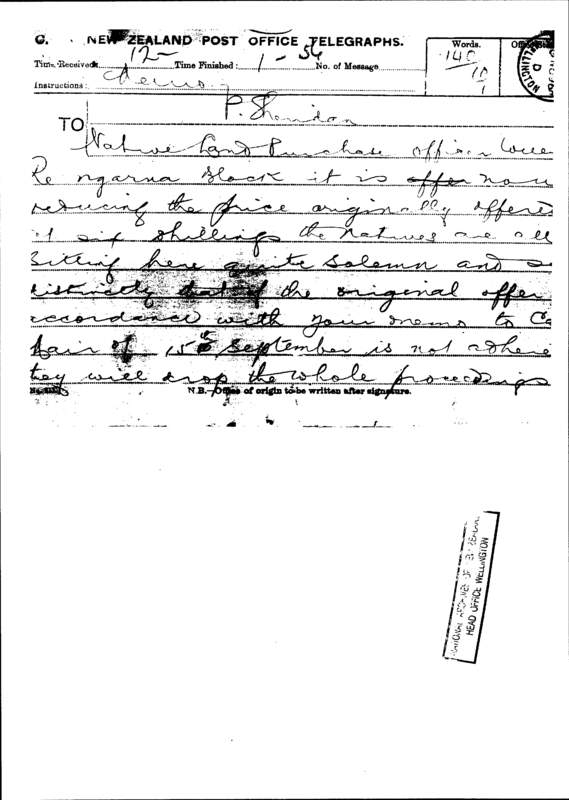 G. NEW ZEALAND POST OFFICE TELEGRAPHS.
Time Received: 12- Time Finished: 1-54 No. of Message
Words.
140
10
1
WELLINGTON
Instructions:
TO P. Sheridan
Native Land Purchase officer
Re ngarna Block it is offer now
reducing the price originally offered
at six shillings the natives are all
sitting here quite solemn and
distinctly that if the original offer
accordance with your memo to
fair of 15th September is not adhere
they will drop the whole proceedings
N.B.—Office of origin to be written after signature.
NATIONAL ARCHIVES OF NEW ZEALAND
HEAD OFFICE WELLINGTON